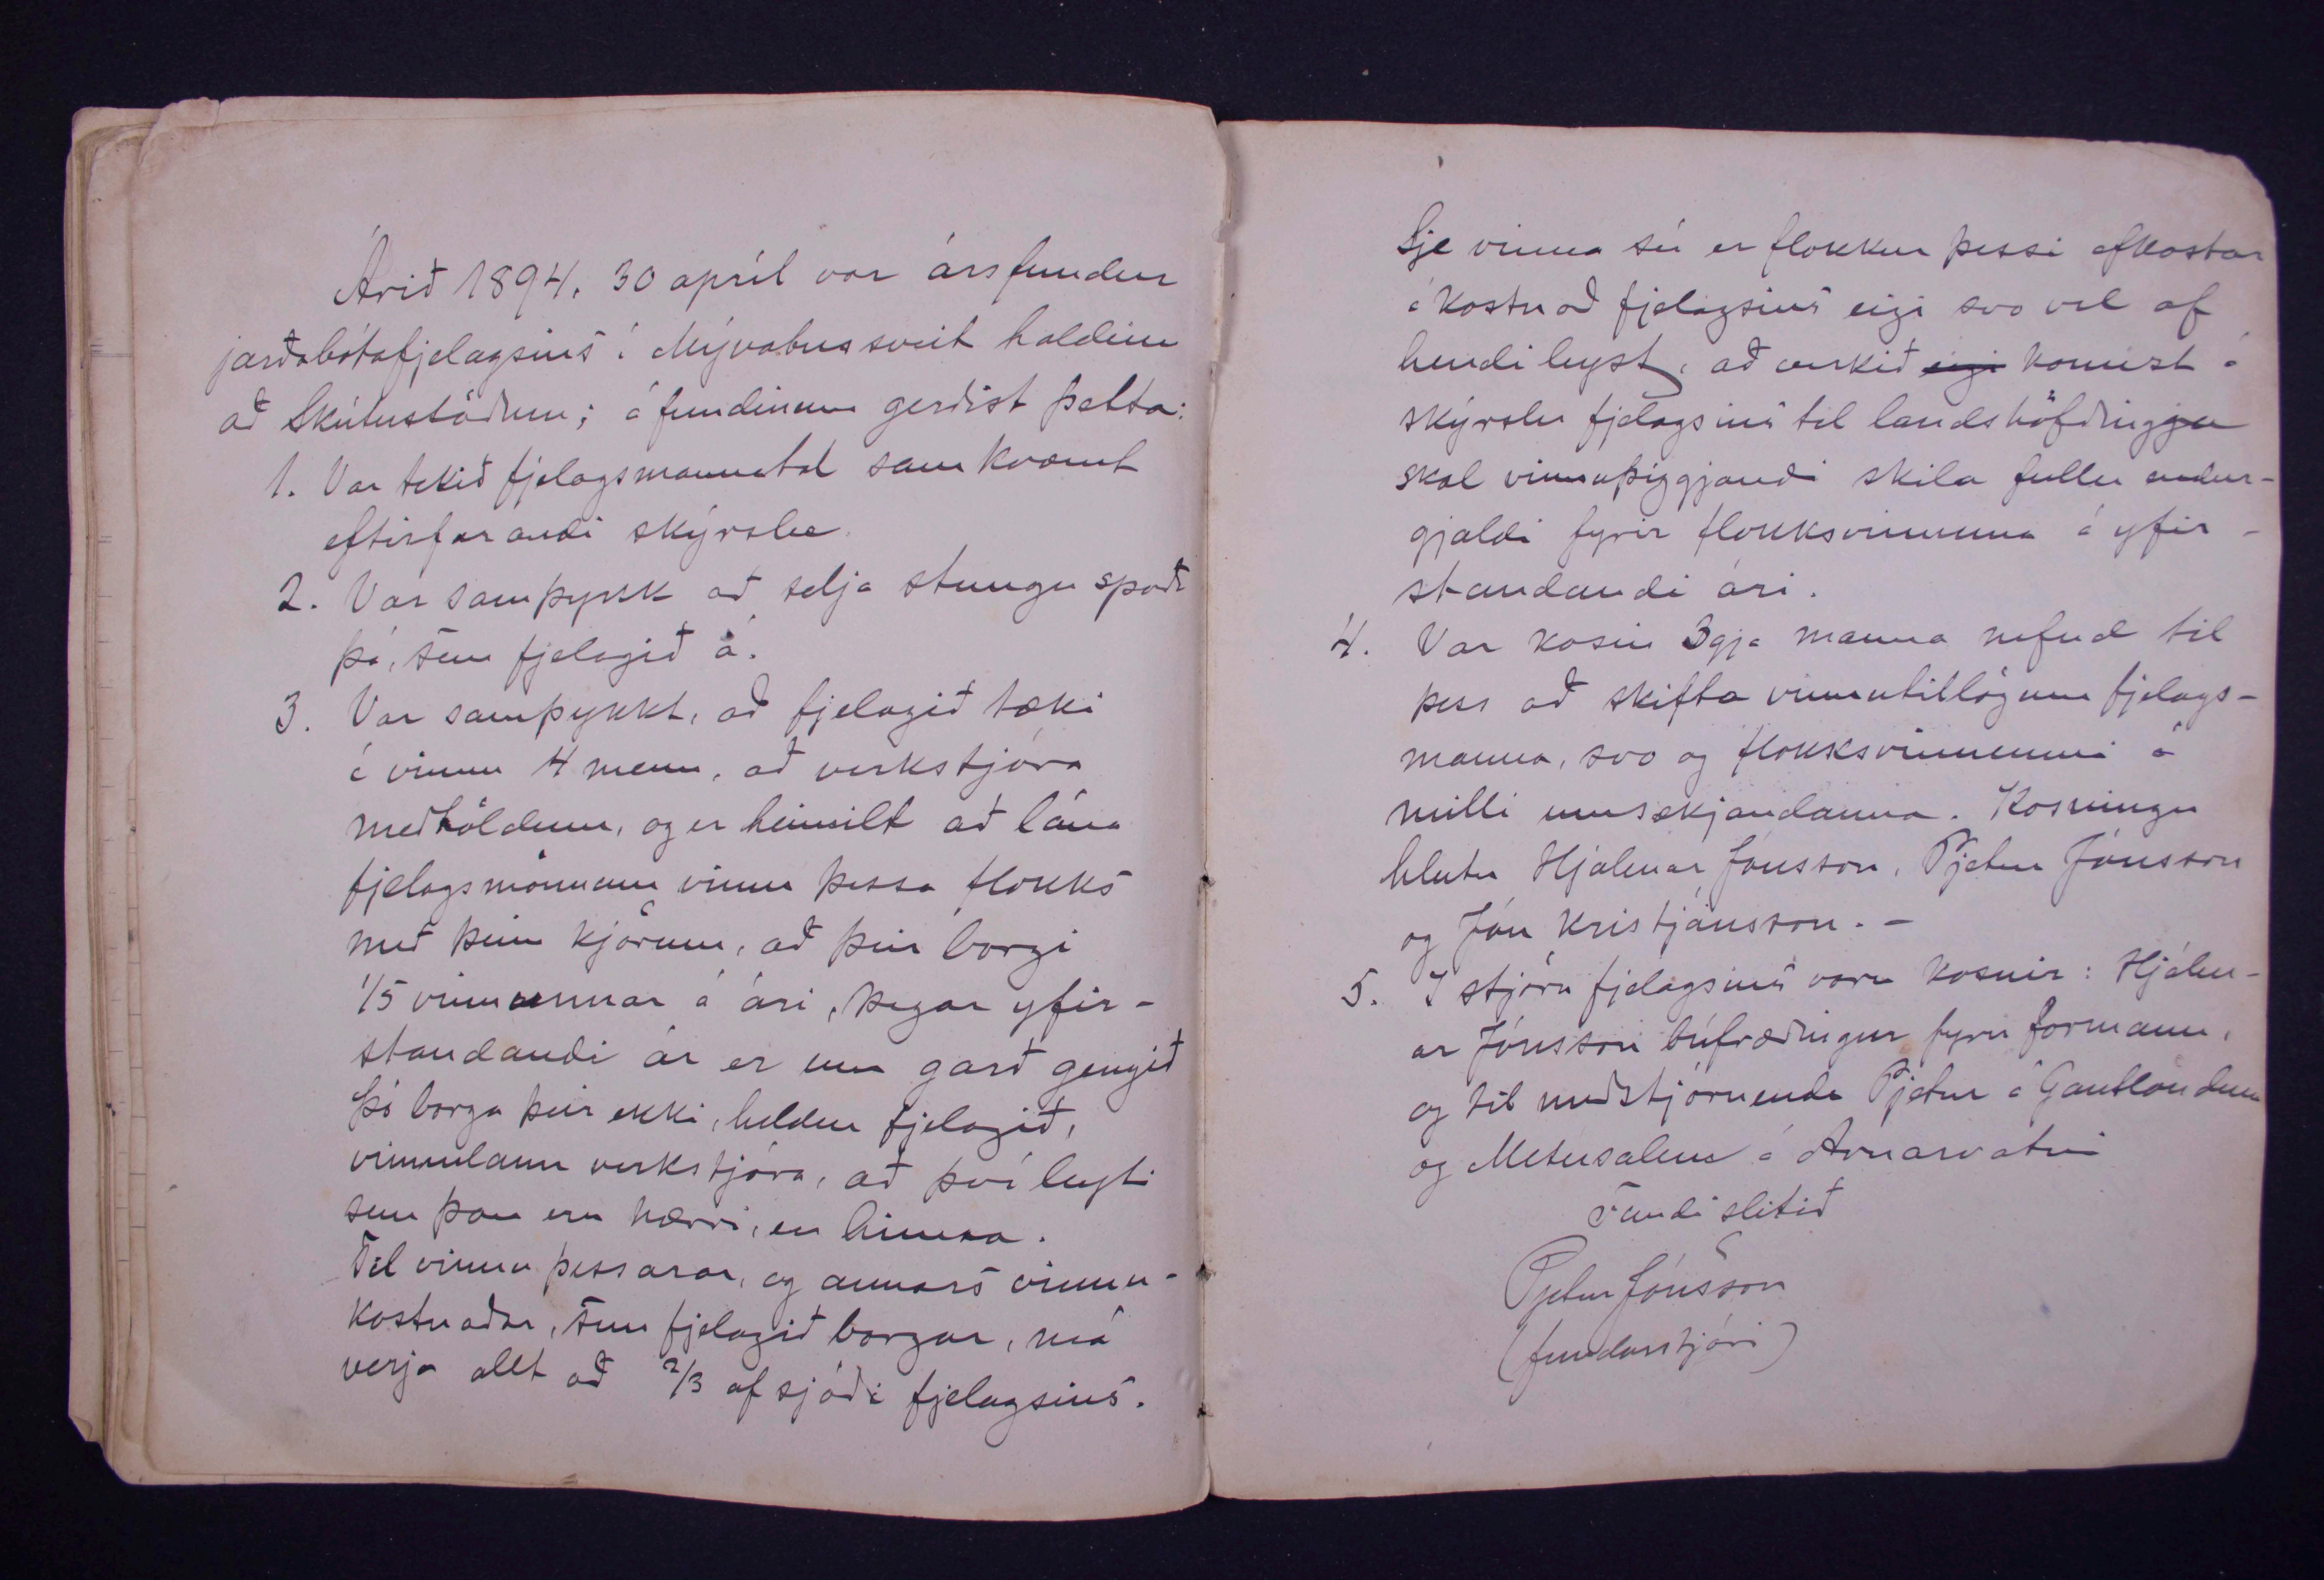 Árið 1894, 30 apríl var ársfundur
jarðabótafjelagsins í Mývatnssveit haldinn
að Skútustöðum; á fundinum gerðist þetta:
1. Var tekið fjelagsmannatal samkvæmt
eftirfarandi skýrslu.
2. Var samþykk að selja stungu spaða
þá, sem fjelagið á.
3. Var samþykkt, að fjelagið tæki
í vinnu 4 menn, að verkstjóra
meðtöldum, og er heimilt að lána
fjelagsmönnum vinnu þessa flokks
með þeim kjörum, að þeir borgi
1/5 vinnunnar á ári, þegar yfir-
standandi ár er um garð gengið
Þó borga þeir ekki, heldur fjelagið,
vinnulaun verkstjóra, að því leyti
sem þau eru hærri, en hinna.
Til vinnu þessarar, og annars vinnu-
kostnaðar, sem fjelagið borgar, má
verja allt að 2/3 af sjóði fjelagsins.
Sje vinna sú er flokkur þessi afkastar
á kostnað fjelagsins eigi svo vel af
hendi leyst, að verkið eigi komist á
skýrslu fjelagsins til landshöfðingja
skal vinnuþiggjandi skila fullu endur-
gjaldi fyrir flokksvinnuna á yfir-
standandi ári.
4. Var kosin 3gja manna nefnd til
þess að skifta vinnutillögum fjelags-
manna, svo og flokksvinnunni á
milli umsækjandanna. Kosningu
hlutu Hjálmar Jónsson, Pjetur Jónsson
og Jón Kristjánsson. -
5. I stjórn fjelagsins voru kosnir: Hjálm-
ar Jónsson búfræðingur fyrir formann,
og til meðstjórnenda Pjetur á Gautlöndum
og Metúsalem á Arnarvatni
Fundi slitið
Pjetur Jónsson
(fundarstjóri)